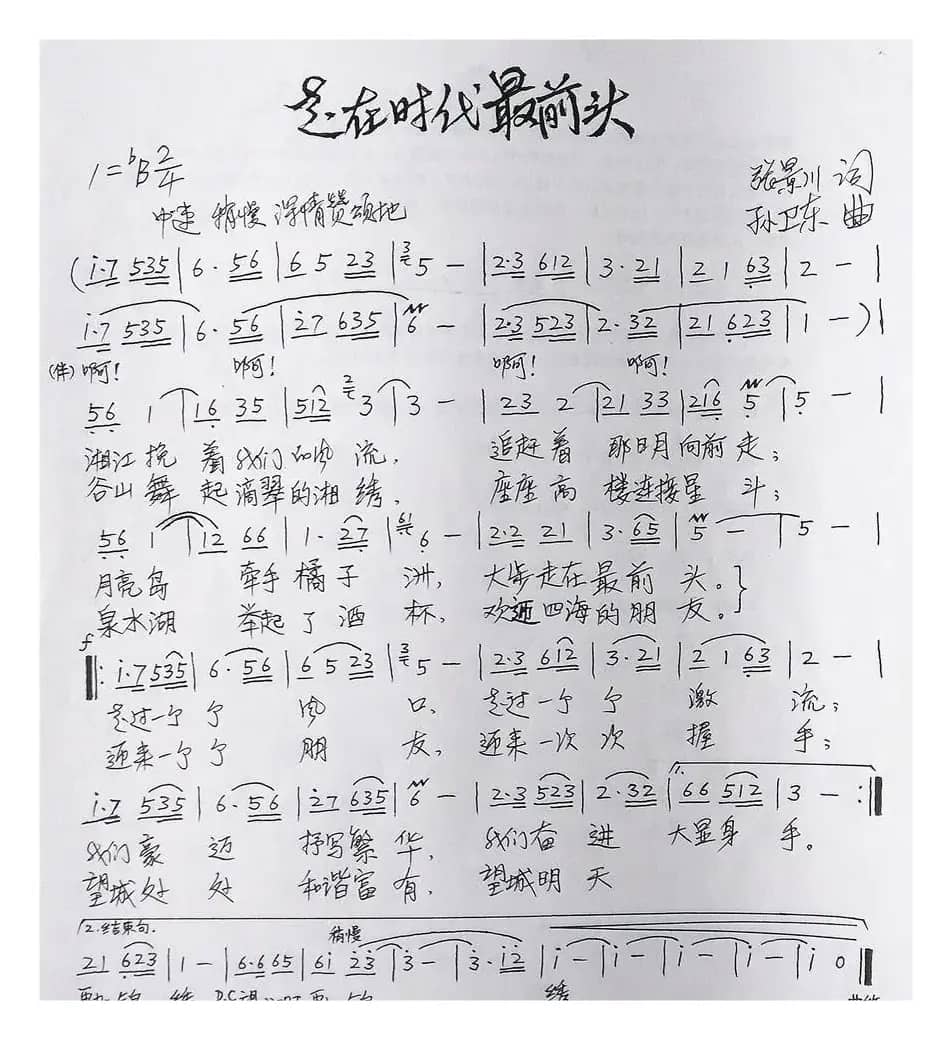 走在时代最前头
1=ᵇB 2/4
张景川 词
中速 稍慢 深情赞颂地
孙卫东 曲
(i·7 535|6·56|6 5 23|5 —|2·3 612|3·21|2 1 63|2 —|
i·7 535|6·56|27 635|6 —|2·3 523|2·32|21 623|1 —)|
(伴)啊! 啊! 啊! 啊!
56 1|16 35|512 3|3 —|23 2|21 33|216 5|5 —|
湘江挽着我们的风流, 追赶着那日月向前走;
谷山舞起滴翠的湘绣, 座座高楼连接星斗;
56 1|12 66|1·27|6 —|2·2 21|3·65|5 —|5 —|
月亮岛 牵手橘子洲, 大步走在最前头。
泉水湖 举起了酒杯, 欢迎四海的朋友。
f
‖:i·7 535|6·56|6 5 23|5 —|2·3 612|3·21|2 1 63|2 —|
走过一个个风口, 走过一个个激流;
迎来一个个朋友, 迎来一次次握手;
1.
i·7 535|6·56|27 635|6 —|2·3 523|2·32|66 512|3 —:‖
我们豪迈抒写繁华, 我们奋进大显身手。
望城处处和谐富有, 望城明天
2.结束句. 稍慢
21 623|1 —|6·6 65|6i 23|3 —|3·12|i —|i —|i —|i —|i 0‖
D.C 绣